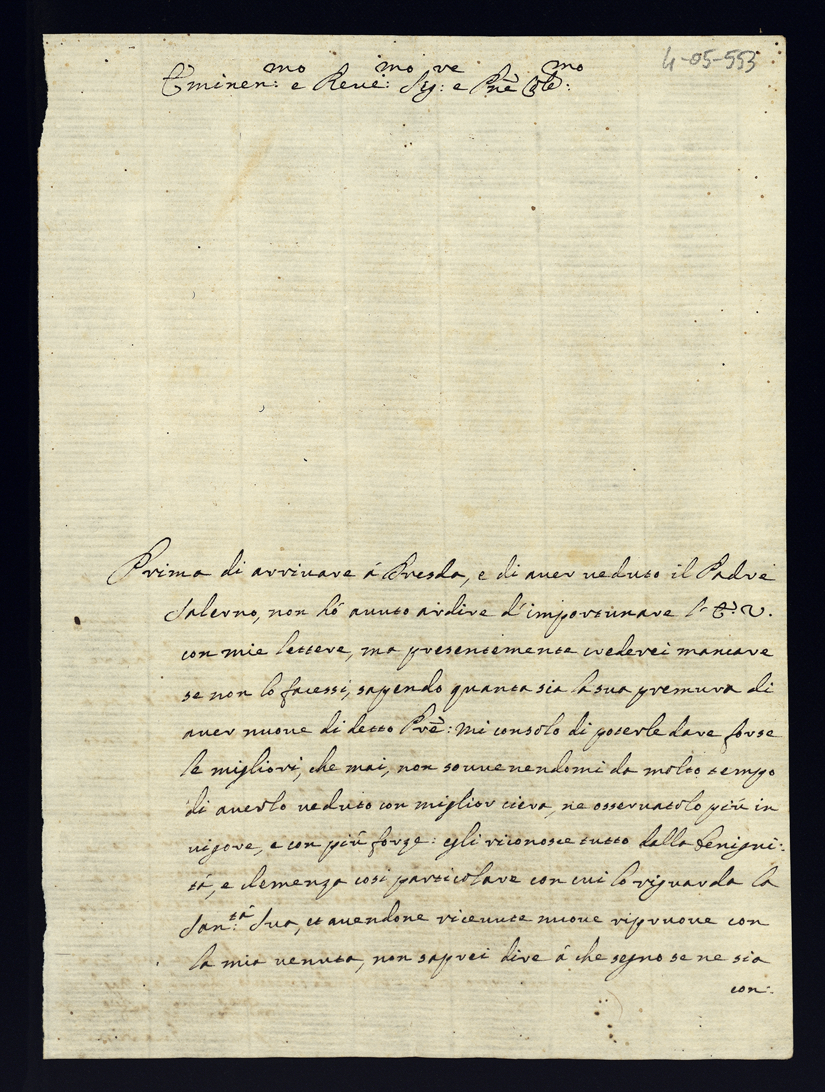 4-05-553
Eminen:mo e Reve:mo Sig:re e Pñe Col:mo
Prima di arrivare á Dresda, e di aver veduto il Padre
Salerno, non hó avuto ardire d'importunare l'E: V.
con mie lettere, ma presentemente crederei mancare
se non lo facessi, sapendo quanta sia la sua premura di
aver nuove di detto Prê: mi consolo di poterle dare forse
le migliori, che mai, non sovvenendomi da molto tempo
di averlo veduto con miglior ciera, ne osservatolo piú in
vigore, e con piú forze: egli riconosce tutto dalla benigni:
tá, e clemenza cosi particolare con cui lo riguarda la
San:tá Sua, et avendone ricevute nuove ripruove con
la mia venuta, non saprei dire á che segno se ne sia
con: